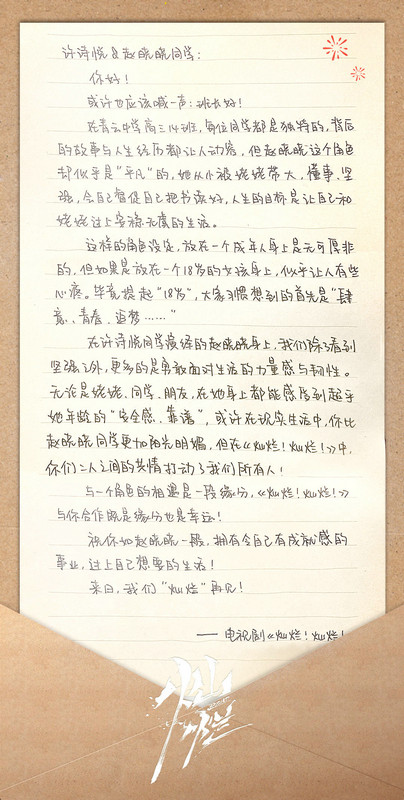 许诗悦&赵晓晓同学：
你好！
或许也应该喊一声：班长好！
在青云中学高三14班，每位同学都是独特的，背后
的故事与人生经历都让人动容，但赵晓晓这个角色
却似乎是“平凡”的，她从小被姥姥带大，懂事、坚
强，会自己督促自己把书读好，人生的目标是让自己和
姥姥过上安稳无虞的生活。
这样的角色设定，放在一个成年人身上是无可厚非
的，但如果是放在一个18岁的女孩身上，似乎让人有些
心疼。毕竟提起“18岁”，大家习惯想到的首先是“肆
意、青春、追梦……”
在许诗悦同学演绎的赵晓晓身上，我们除了看到
坚强之外，更多的是勇敢面对生活的力量感与韧性。
无论是姥姥、同学、朋友，在她身上都能感知到超乎
她年龄的“安全感、靠谱”，或许在现实生活中，你比
赵晓晓同学更加阳光明媚，但在《灿烂！灿烂！》中，
你们二人之间的共情打动了我们所有人！
与一个角色的相遇是一段缘分，《灿烂！灿烂！》
与你合作既是缘分也是幸运！
祝你如赵晓晓一般，拥有令自己有成就感的
事业，过上自己想要的生活！
来日，我们“灿烂”再见！
——电视剧《灿烂！灿烂！
灿烂